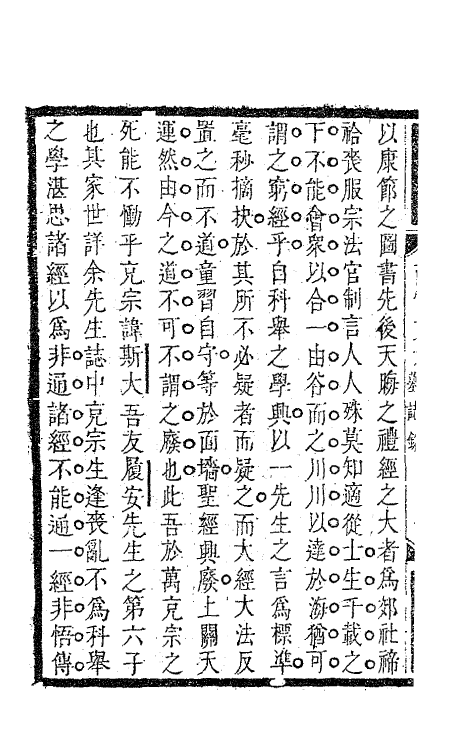 以康節之圖書先後天晦之禮經之大者爲郊社禘
祫喪服宗法官制言人人殊莫知適從士生千載之
下不能會衆以合一由谷而之川川以達於海猶可
謂之窮經乎自科舉之學興以一先生之言爲標準
毫秒摘抉於其所不必疑者而疑之而大經大法反
置之而不道童習自守等於面墻聖經興廢上關天
運然由今之道不可不謂之廢也此吾於萬充宗之
死能不慟乎充宗諱斯大吾友履安先生之第六子
也其家世詳余先生誌中充宗生逢喪亂不爲科舉
之學湛思諸經以爲非通諸經不能通一經非悟傳